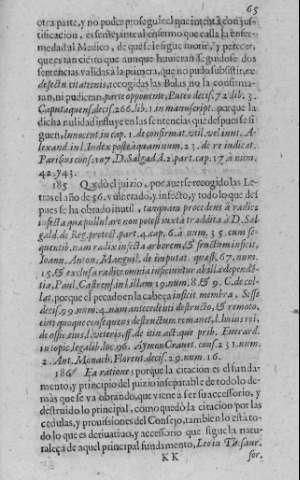 65
otra parte, y no poder proseguir el que intenta con jus-
tificacion, es semejante al enfermo que calla la enfer-
medad al Medico, de que se sigue morir, y perecer,
que es tan cierto que aunque huuieran seguidose dos
sentencias validas a la primera, que no pudo subsistir, ex
defectu citationis, accogidas las Bulas no la confirma-
ran, ni pudieran, parte opponente, Puteo decis. 72. lib. 3.
Capita aquens. decis. 266. lib. 1. in manuscript. porque la
dicha nulidad influye en las sentencias que despues se si-
guen, Innocent in cap. 1. de confirmat. util. vel inut. A-
lexand. in l. Index postea quam num. 23. de re iudicat.
Parisi. cons. 107. D. Salgad. 2. part. cap. 17. à num.
42. y 43.
185 Quedò el juizio, por auerse recogido las Le-
tras el año de 56. vulnerado, y infecto, y todo lo que des-
pues se ha obrado inutil, tanquam procedens à radice
infecta quæ pullulare non potest iuxta traddita à D. Sal-
gad. de Reg. protect. part. 4. cap. 6. à num. 35. cum se-
quentib. nam radix infecta arborem, & fructum inficit,
Ioann. Anton. Mangil. de imputat. quæst. 67. num.
15. & exclusa radice omnia resecuntur ab illa dependen-
tia, Paul. Castrens. in l. illam 19. num. 8. & 9. C. de col-
lat. porque el pecado en la cabeça inficit membra. Sesse
decis. 99. num. 4. nam antecedenti destructo, & remoto,
eius quoque consequens destructum remanet, l. huius rei,
de offic. eius, l. viteris, ff. de vsu. act. que prib. Euerard.
in topic. legalib. loc. 96. Aymon Crauet. cons. 231. num.
2. Ant. Monach. Florent. decis. 29. num. 16.
186 Ea ratione: porque la citacion es el funda-
mento, y principio del juizio inseparable de todo lo de-
màs que se va obrando, que viene a ser su accessorio, y
destruido lo principal, como quedò la citacion por las
cedulas, y prouisiones del Consejo, tambien lo està to-
do lo que es deriuatiuo, y accessorio que sigue la natu-
raleça de aquel principal fundamento, Leotar. Tesaur.
KK for.